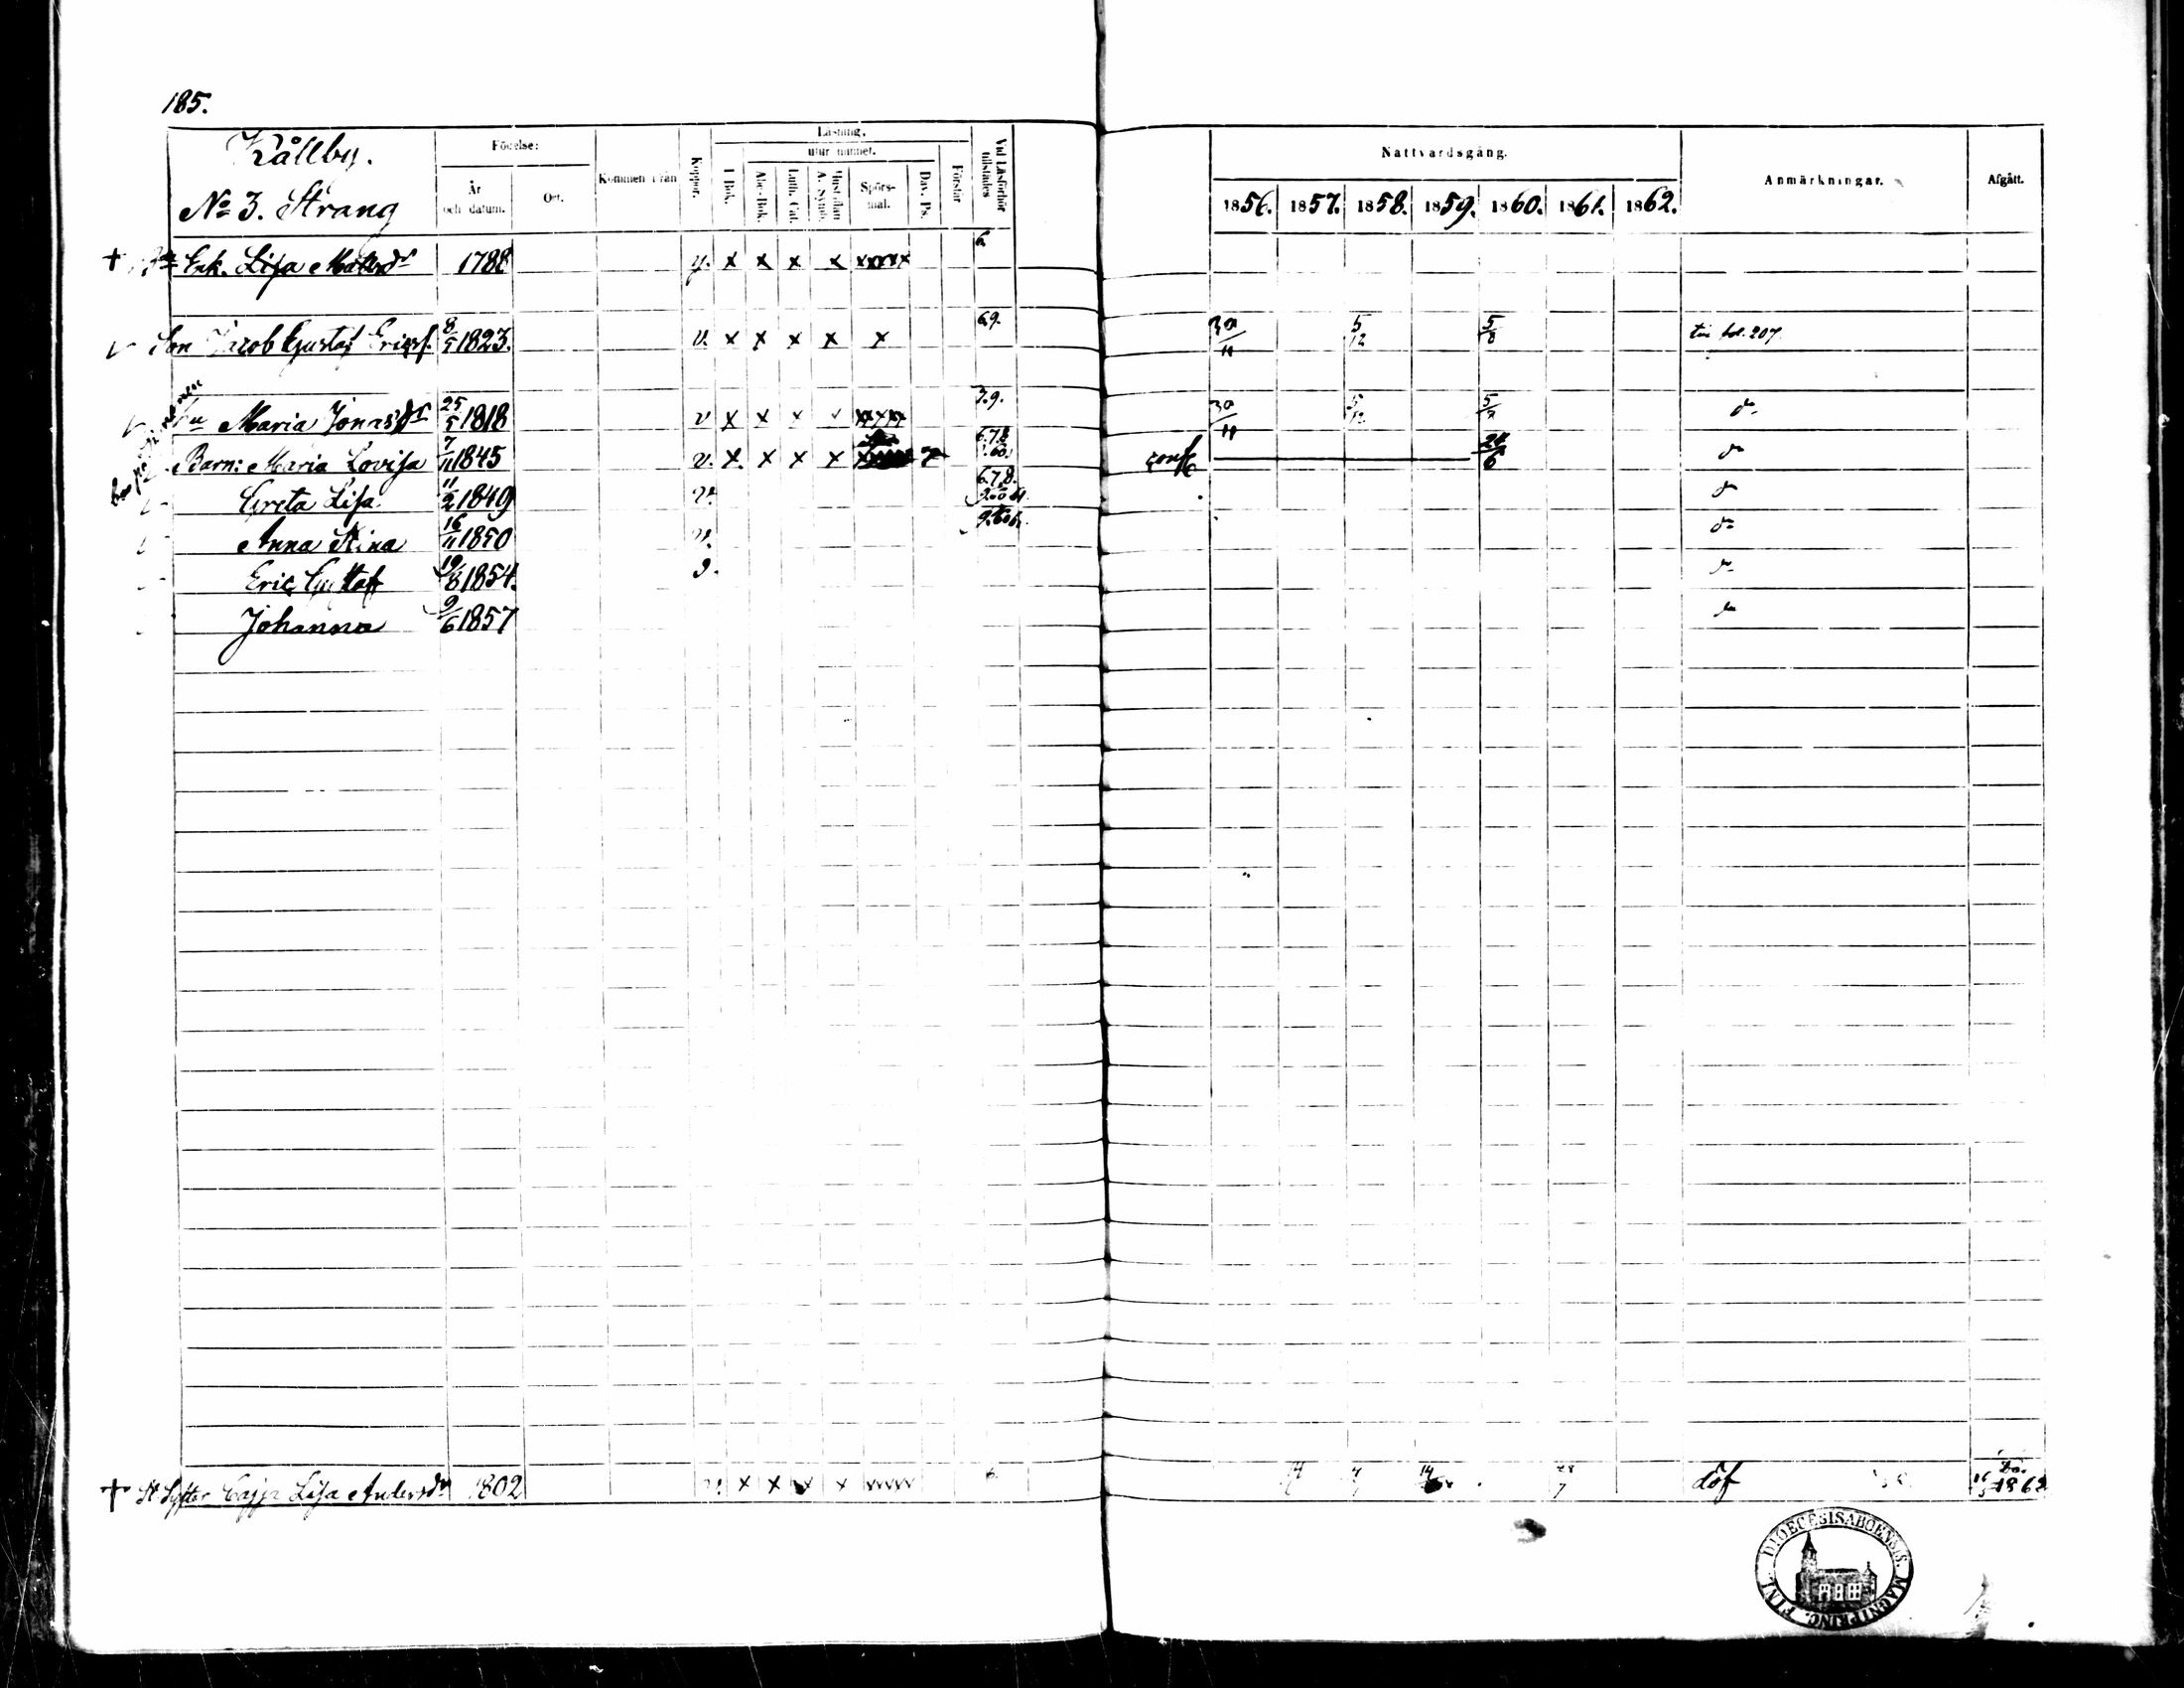 185.
Kållby.
No 3. Strang
Födelse:
År och datum.
Ort.
Kommen från
Koppor.
Läsning.
utur minnet.
I Bok.
Abc-Bok.
Luth. Cat.
Hustaflan A. Symb.
Spörsmål.
Dav. Ps.
Förstår
Vid Läsförhör tillstädes
Nattvardsgång.
1856. 1857. 1858. 1859. 1860. 1861. 1862.
Anmärkningar.
Afgått.
+ Enk. Lisa Matsdr 1788 v. x x x x xxxxx 6
v Son Jacob Gustaf Ericss. 8/5 1823. v. x x x x x 6.9. 30/11 5/12 5/8 till fol. 207.
v Hu Maria Jonasdr 25/5 1818 v x x x xxxx 3.9. 30/11 5/12 5/8 do
Barn: Maria Lovisa 7/11 1845 v. x. x x x 6.7.8. conf. 24/6 do
Greta Lisa. 11/2 1849 v. 6.7.8. do
Anna Stina 16/11 1850 v. do
Eric Gustaf 19/8 1854. v. do
Johanna 9/6 1857 do
+ Cajsa Lisa Andersdr 1802 v. x x x x xxxxx 6. döf 1862
DIOECESIS ABOENSIS. MAGNI PRINC. FINL.